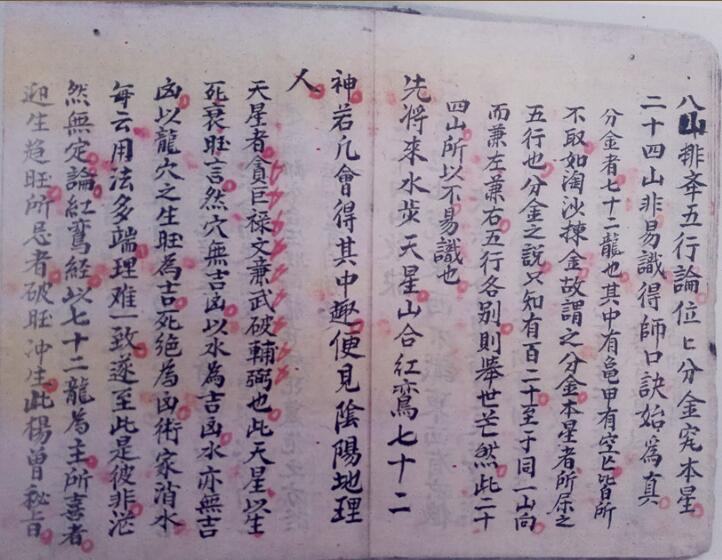 八山排來五行論位匕分金究本星
二十四山非易識得師口訣始爲真
分金者七十二龍也其中有龜甲有空亡皆所
不取如淘沙揀金故謂之分金本星者所屈之
五行也分金之説只知有百二十至于同一山向
而兼左兼右五行各别則舉世茫然此二十
四山所以不易識也
先將來水步天星山合紅鸞七十二
神若凢會得其中趣便見陰陽地理
人
天星者貪巨禄文亷武破輔弼也此天星以生
死衰旺言然穴無吉凶以水為吉凶水亦無吉
凶以龍穴之生旺為吉死絶為凶術家消水
每云用法多端理难一致遂至此是彼非茫
然無定論紅鸞経以七十二龍為主所喜者
迎生趋旺所忌者破旺冲生此楊曾秘旨